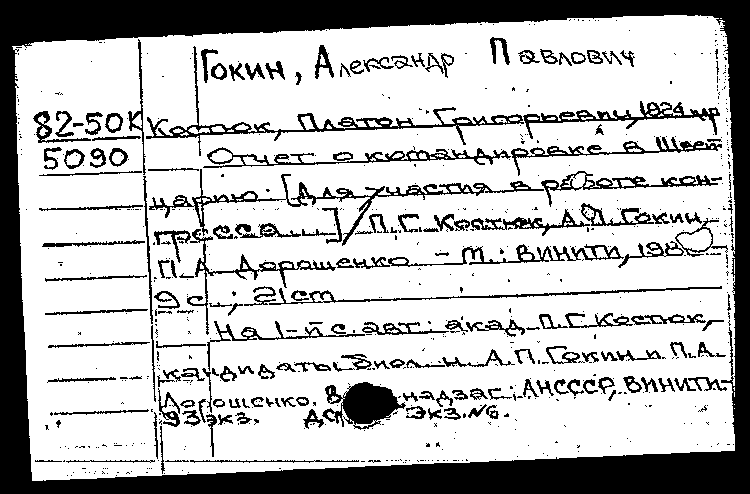 Гокин, Александр Павлович
82-50К Костюк, Платон Григорьевич, 1924
5090 Отчет о командировке в Швей-
царию: [Для участия в работе кон-
гресса...] / П.Г. Костюк, А.П. Гокин,
П.А. Дорошенко. - М.: ВИНИТИ, 198
9 с.; 21 cm
На 1-й с. авт.: акад. П.Г. Костюк,
кандидаты биол. н. А.П. Гокин и П.А.
Дорошенко. В надзаг.: АН СССР, ВИНИТИ-
93 экз. экз. №6.